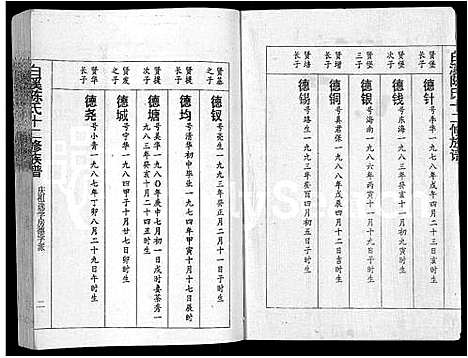 白溪陈氏十二修族谱
贤培长子
德针
号丰华一九八一年辛酉十月初三日子时生
贤培次子
德钱
号东海一九八三年癸亥十月初一日丑时生
三子
德银
号海南一九八六年丙寅十月十一日戌时生
贤培长子
德铜
号真君张一九八八年戊辰四月十一日子时生
贤培长子
德锡
号路生一九九五年乙亥四月初五日子时生
贤基之子
德钗
号亮生一九八三年癸亥十一月初一日子时生
贤发长子
德均
号清华初中毕业一九七四年甲寅十月十七日辰时
次子
德塘
号美华一九八〇年庚申七月初一日戌时妻茶秀一
一九八三年癸亥十月二十四丑时生
贤发次子
德城
号中华一九八四甲子十月廿七日卯时生
贤华长子
德尧
号小青一九八七年丁卯八月二十九日午时生
白溪陈氏十二修族谱
庆祖选子房德字派
二